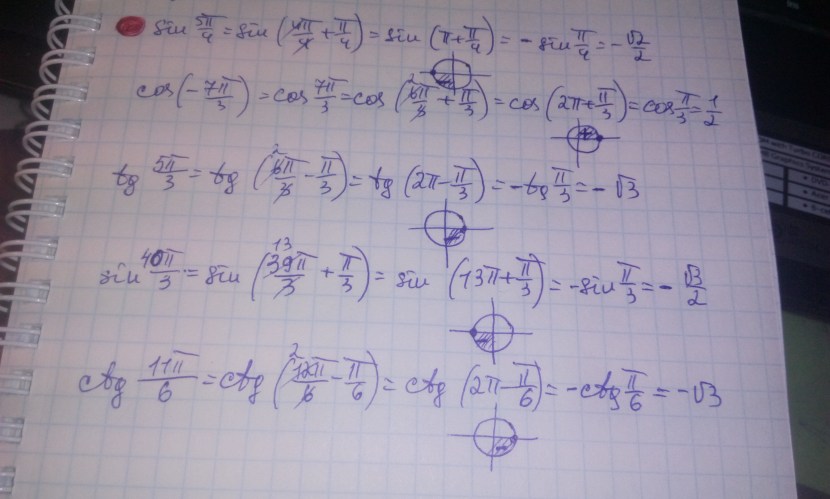 sin 5π/4 = sin (4π/4 + π/4) = sin (π + π/4) = - sin π/4 = - √2/2
cos (- 7π/3) = cos 7π/3 = cos (6π/3 + π/3) = cos (2π + π/3) = cos π/3 = 1/2
tg 5π/3 = tg (6π/3 - π/3) = tg (2π - π/3) = - tg π/3 = - √3
sin 40π/3 = sin (39π/3 + π/3) = sin (13π + π/3) = - sin π/3 = - √3/2
ctg 11π/6 = ctg (12π/6 - π/6) = ctg (2π - π/6) = - ctg π/6 = - √3